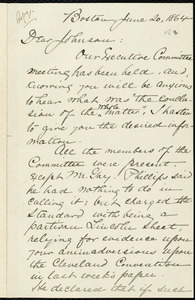 Boston, June 20, 1864
Dear Johnson:
Our Executive Committee
meeting has been held, and,
knowing you will be anxious
to hear what was "the conclu-
sion of the whole matter," I hasten
to give you the desired infor-
mation.
All the members of the
Committee were present,
except M. Gay. Phillips said
he had nothing to do in
calling it, but charged the
Standard with being a
partisan Lincoln sheet,
relying for evidence upon
your animadversions upon
the Cleveland Convention
in last week's paper.
He declared that if such